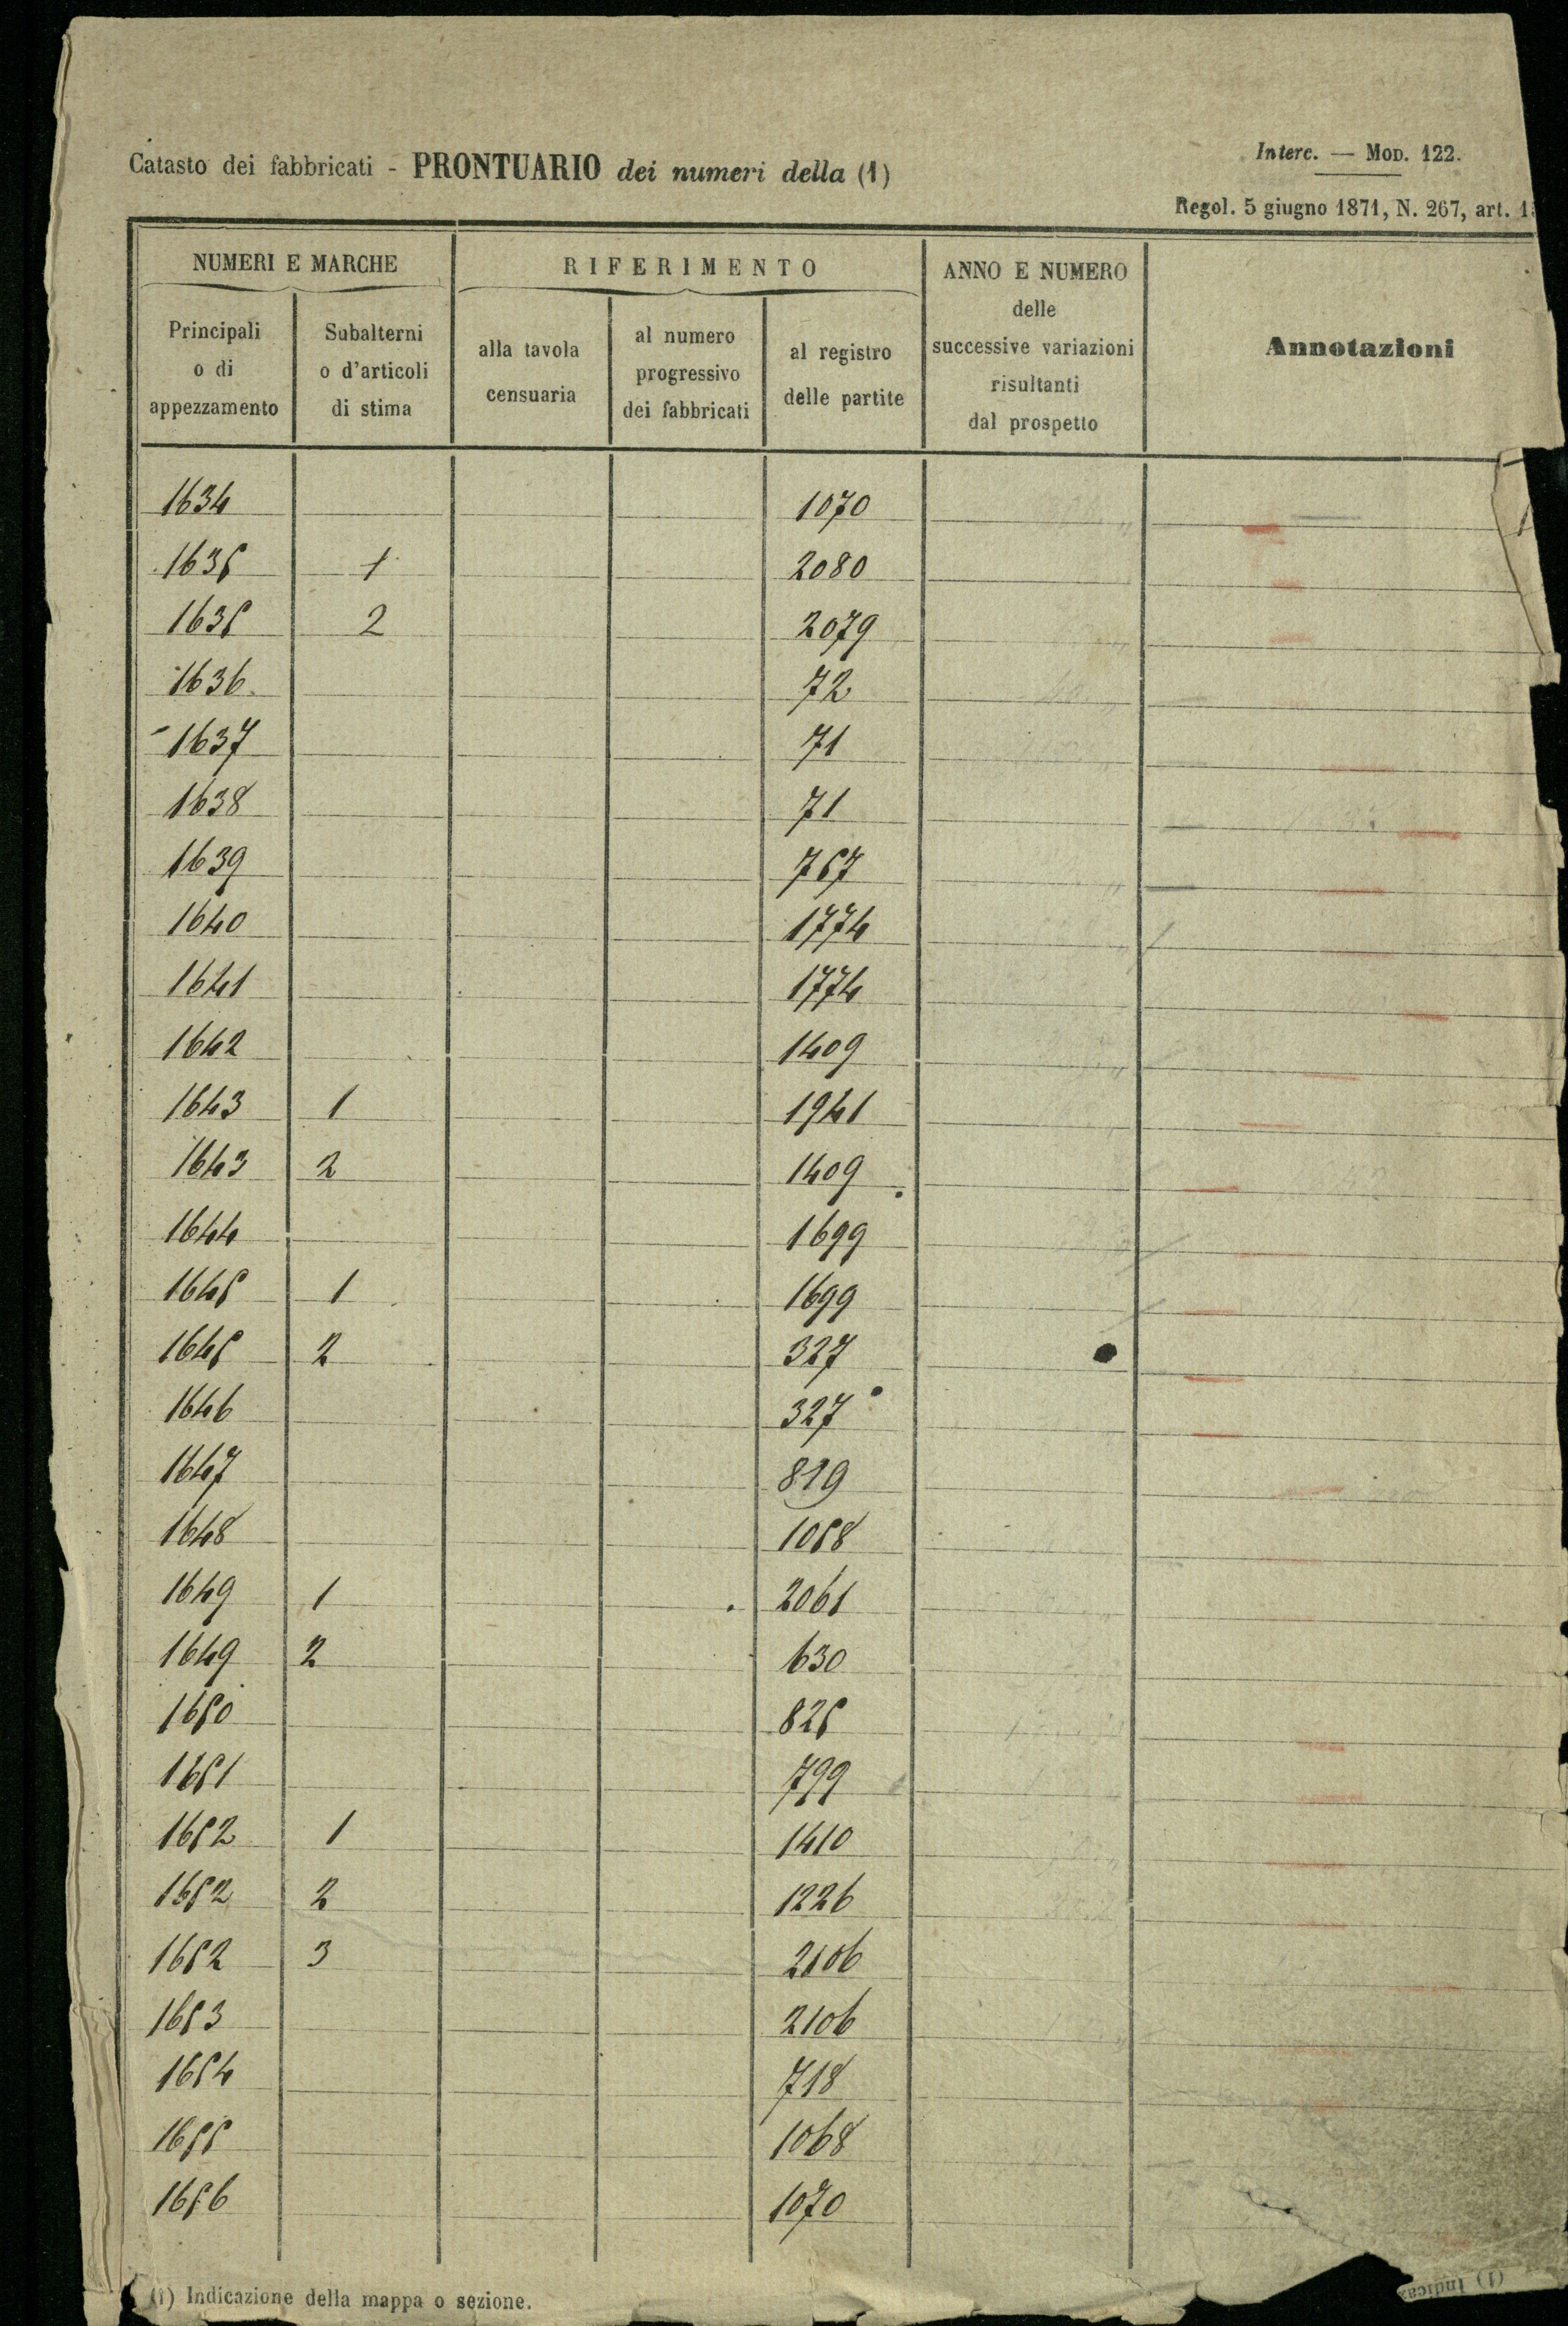 Catasto dei fabbricati - PRONTUARIO dei numeri della (1)
Interc. — MOD. 122.
Regol. 5 giugno 1871, N. 267, art.
NUMERI E MARCHE
RIFERIMENTO
ANNO E NUMERO
delle
successive variazioni
risultanti
dal prospetto
Annotazioni
Principali
o di
appezzamento
Subalterni
o d'articoli
di stima
alla tavola
censuaria
al numero
progressivo
dei fabbricati
al registro
delle partite
1634 1070
1635 1 2080
1635 2 2079
1636 72
1637 71
1638 71
1639 757
1640 1774
1641 1774
1642 1409
1643 1 1941
1643 2 1409
1644 1699
1645 1 1699
1645 2 327
1646 327
1647 819
1648 1058
1649 1 2061
1649 2 630
1650 825
1651 799
1652 1 1410
1652 2 1226
1652 3 2106
1653 2106
1654 718
1655 1068
1656 1070
(1) Indicazione della mappa o sezione.
(1) Indicaz